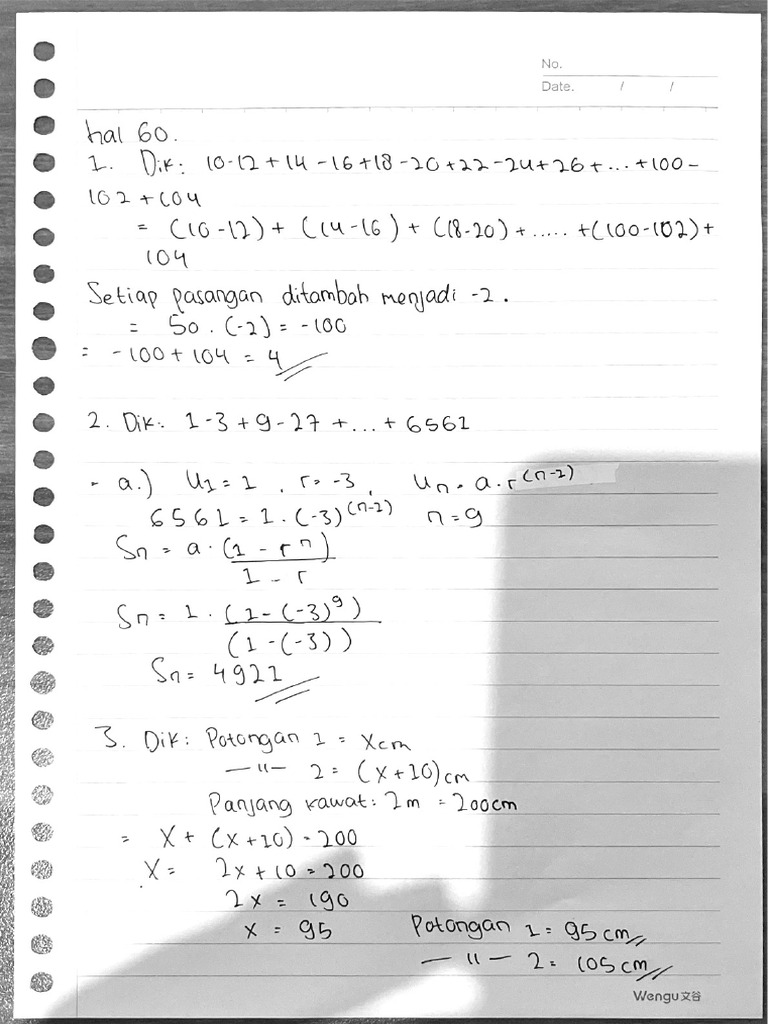 No.
Date. / /
hal 60.
1. Dik: 10-12+14-16+18-20+22-24+26+...+100-
102+104
= (10-12)+(14-16)+(18-20)+.....+(100-102)+
104
Setiap pasangan ditambah menjadi -2.
= 50 . (-2) = -100
= -100+104 = 4
2. Dik: 1-3+9-27+...+6561
- a.) U1 = 1 , r = -3, Un = a.r^(n-1)
6561 = 1.(-3)^(n-1) n = 9
Sn = a . (1 - r^n) / 1 - r
Sn = 1 . (1-(-3)^9) / (1-(-3))
Sn = 4921
3. Dik: Potongan 1 = x cm
—"— 2 = (x+10) cm
Panjang kawat: 2m = 200cm
= x + (x+10) = 200
x = 2x+10 = 200
2x = 190
x = 95
Potongan 1 = 95 cm
—"— 2 = 105 cm
Wengu文谷